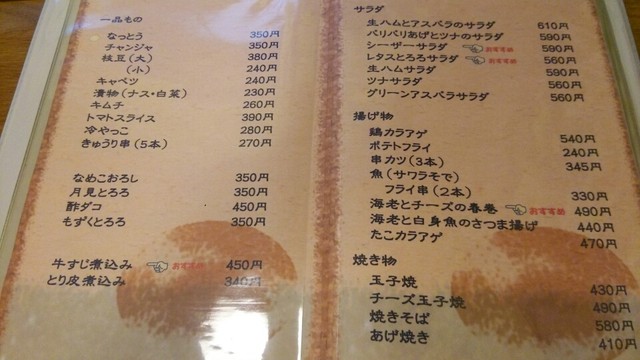 一品もの
なっとう 350円
チャンジャ 350円
枝豆(大) 380円
(小) 240円
キャベツ 240円
漬物(ナス・白菜) 230円
キムチ 260円
トマトスライス 390円
冷やっこ 280円
きゅうり串(5本) 270円
なめこおろし 350円
月見とろろ 350円
酢ダコ 450円
もずくとろろ 350円
牛すじ煮込み おすすめ 450円
とり皮煮込み 340円
サラダ
生ハムとアスパラのサラダ 610円
パリパリあげとツナのサラダ 590円
シーザーサラダ おすすめ 590円
レタスとろろサラダ おすすめ 560円
生ハムサラダ 590円
ツナサラダ 560円
グリーンアスパラサラダ 560円
揚げ物
鶏カラアゲ 540円
ポテトフライ 240円
串カツ(3本) 345円
魚(サワラそで)
フライ串(2本) 330円
海老とチーズの春巻 おすすめ 490円
海老と白身魚のさつま揚げ 440円
たこカラアゲ 470円
焼き物
玉子焼 430円
チーズ玉子焼 490円
焼きそば 580円
あげ焼き 410円